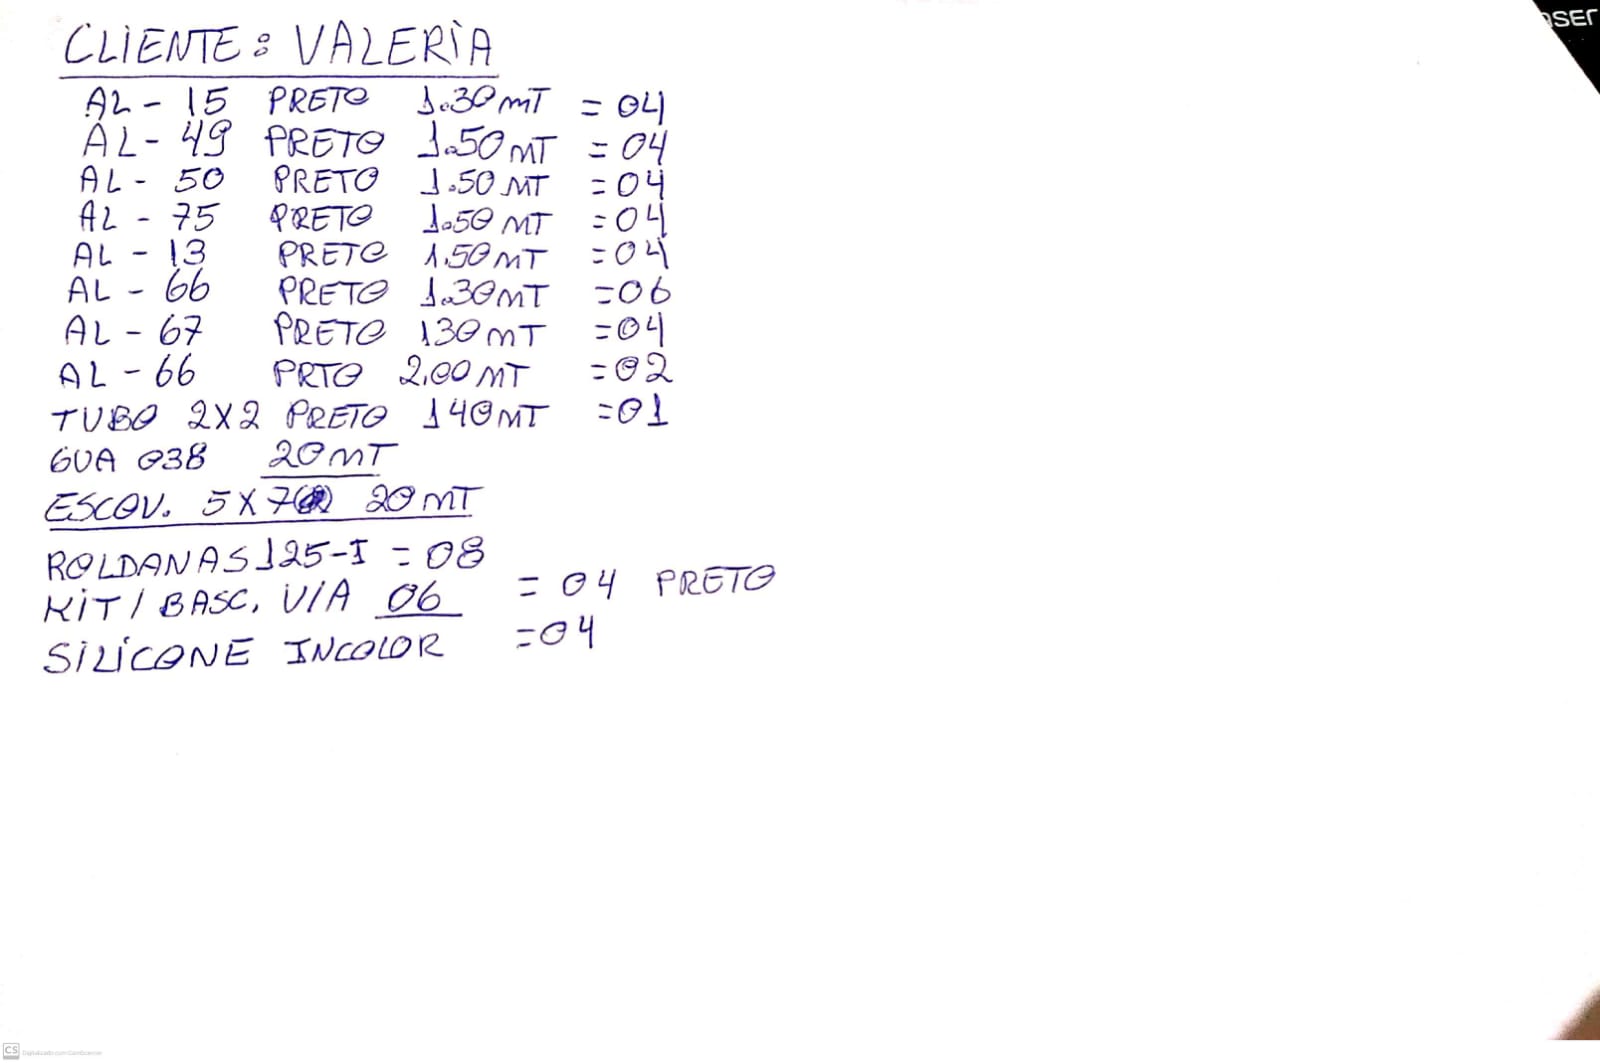 CLIENTE: VALERIA
AL - 15 PRETO 1.30 MT = 04
AL - 49 PRETO 1.50 MT = 04
AL - 50 PRETO 1.50 MT = 04
AL - 75 PRETO 1.50 MT = 04
AL - 13 PRETO 1.50 MT = 04
AL - 66 PRETO 1.30 MT = 06
AL - 67 PRETO 130 MT = 04
AL - 66 PRTO 2.00 MT = 02
TUBO 2X2 PRETO 140 MT = 01
GUA 038 20 MT
ESCOV. 5X7 20 MT
ROLDANAS 125-I = 08
KIT / BASC. V/A 06 = 04 PRETO
SILICONE INCOLOR = 04
CS Digitalizado com CamScanner